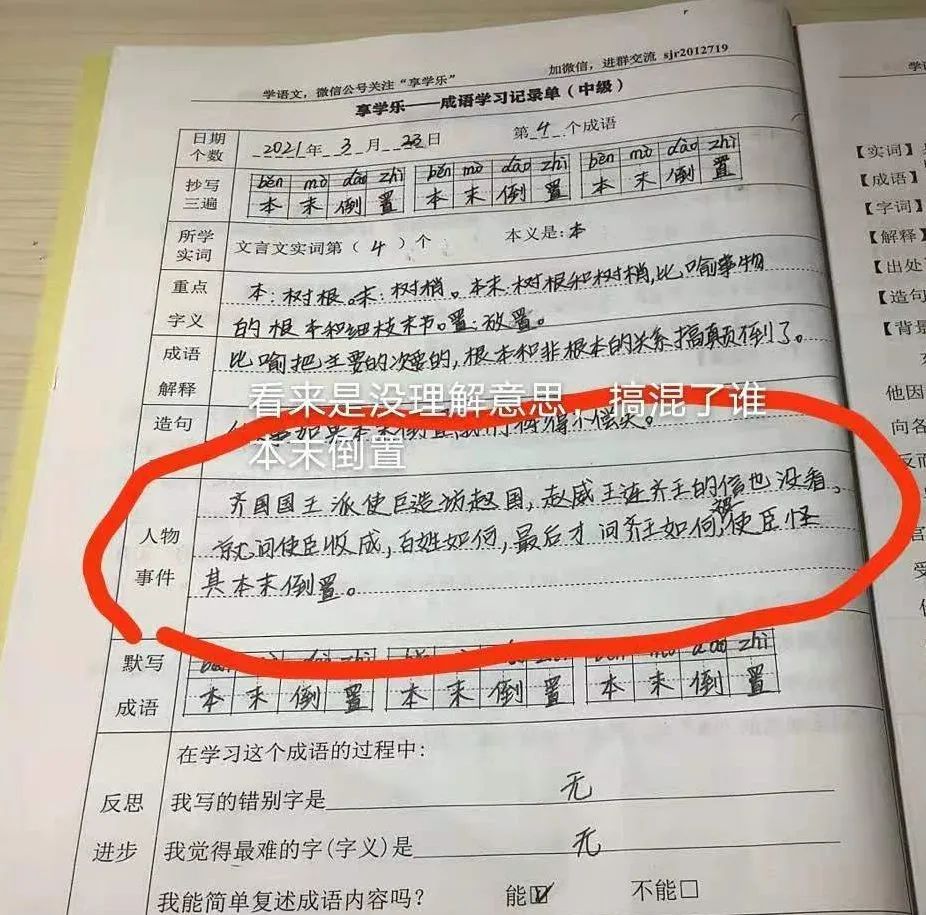 学语文，微信公号关注“享学乐”
加微信，进群交流 sjr2012719
享学乐——成语学习记录单（中级）
日期
个数
2021年 3 月 23 日 第 4 个成语
抄写
三遍
běn mò dào zhì běn mò dào zhì běn mò dào zhì
本 末 倒 置 本 末 倒 置 本 末 倒 置
所学
实词
文言文实词第（ 4 ）个 本义是：本
重点
字义
本：树根。末：树梢。本末：树根和树梢，比喻事物
的根本和细枝末节。置：放置。
成语
解释
比喻把主要的次要的，根本和非根本的关系搞颠倒了。
看来是没理解意思，搞混了谁
本末倒置
造句
如果本末倒置
得不偿失。
人物
事件
齐国国王派使臣造访赵国，赵威王连齐王的信也没看，
就问使臣收成，百姓如何，最后才问齐王如何，使臣怪
其本末倒置。
默写
成语
zhì mò dào zhì
本 末 倒 置 本 末 倒 置 本 末 倒 置
反思
进步
在学习这个成语的过程中：
我写的错别字是 无
我觉得最难的字(字义)是 无
我能简单复述成语内容吗？ 能☑ 不能□
学语
【实词】
【成语】
【字词】
【解释】
【出处
【造句
【背景
他因
向各
反而
官
受